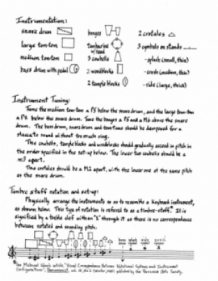 Instrumentation:
snare drum bongos 2 crotales
large tom tom timbarine w/ head 3 cymbals on stands
medium tom tom 3 cowbells - splash (small, thin)
bass drum with pedal 2 woodblocks - crash (medium, thin)
2 temple blocks - ride (large, thick)
Instrument Tuning:
Tune the medium tom tom a P5 below the snare drum, and the large tom tom
a P4 below the snare drum. Tune the bongos a P5 and a M6 above the snare
drum. The bass drum, snare drum and tom toms should be dampened for a
staccato sound without too much ring.
The cowbells, temple blocks and woodblocks should gradually ascend in pitch in
the order specified in the set-up below. The lower two cowbells should be a
m3 apart.
The crotales should be a M2 apart, with the lower one at the same pitch
as the snare drum.
Timbre staff notation and set-up:
Physically arrange the instruments so as to resemble a keyboard instrument,
as shown below. This type of notation is referred to as a timbre-staff. It is
signified by a treble clef without "S" through it as there is no correspondence
between notated and sounding pitch.